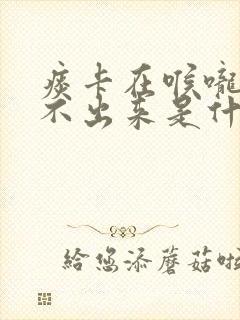 痰卡在喉嚨
不出来是什
给您添蘑菇啦